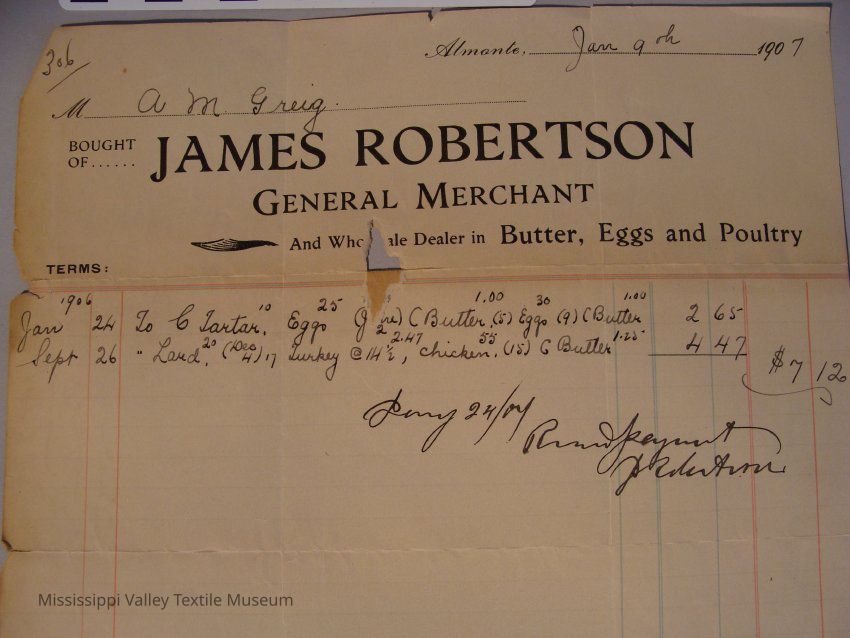 306
Almonte, Jan 9th 1907
M A M. Greig.
BOUGHT OF...... JAMES ROBERTSON
GENERAL MERCHANT
And Who ale Dealer in Butter, Eggs and Poultry
TERMS:
1906
Jan 24 To C Tartar, 10 Eggs 25 C Butter 1.00 (5) Eggs 30 (9) C Butter 1.00 2 65
Sept 26 " Lard, 20 (Dec 4) 17 Turkey @ 14½, 2.47 chicken, 55 (15) C Butter 1.25 4 47
$7 12
24/07
Recd payment
J Robertson
Mississippi Valley Textile Museum